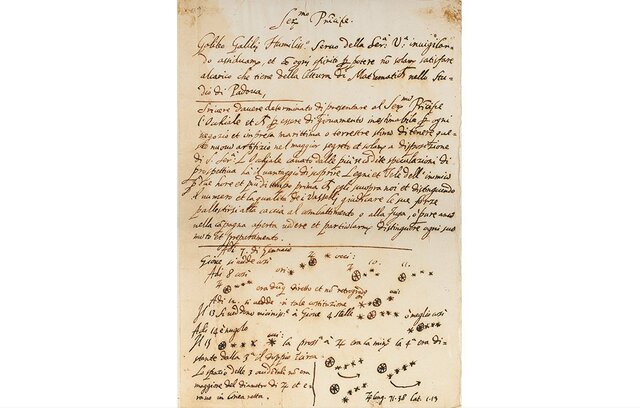 Ser.mo Principe.
Galileo Galilei Humiliss.o Servo della Ser.a V.a invigilan-
do assiduam.te, et cō ogni spirito p̄ potere nō solam.te satisfare
al carico che tiene della lettura di Mathematich. nello Stu-
dio di Padova,
Scrivere d'avere determinato di presentare al Ser.mo Principe
l'Occhiale et p̄ essere di giovamento inestimabile p̄ ogni
negozio et impresa marittima o terrestre stimo di tenere que-
sto nuovo artifizio nel maggior segreto et solam.te a disposizione
di S. Ser.a L'Occhiale cavato dalle più recondite speculazioni di
prospettiva ha il vantaggio di scoprire Legni et Vele dell'inimico
p̄ due hore et più di tempo prima ch'egli scuopra noi et distinguendo
il numero et la qualità de i Vasselli giudicare le sue forze
pallestirsi alla caccia al combattimento o alla fuga, o pure anco
nella campagna aperta vedere et particolarm.te distinguere ogni suo
moto et preparamento.
Adi 7. di Gennaio
Giove si vedde così
Adi 8 così
era dūq. diretto et nō retrogrado
Adi 12. si vedde in tale costituzione
Il 13 si veddono vicinissime à Giove 4 stelle ò meglio così
Adi 14 è nugolo
Il 15 la pross.a à ♃ era la min.e la 4.a era di-
stante dalla 3.a il doppio incirca
Lo spazio delle 3 occidentali nō era
maggiore del diametro di ♃ et e-
rano in linea retta.
♃ long. 71.38 lat. 1.13